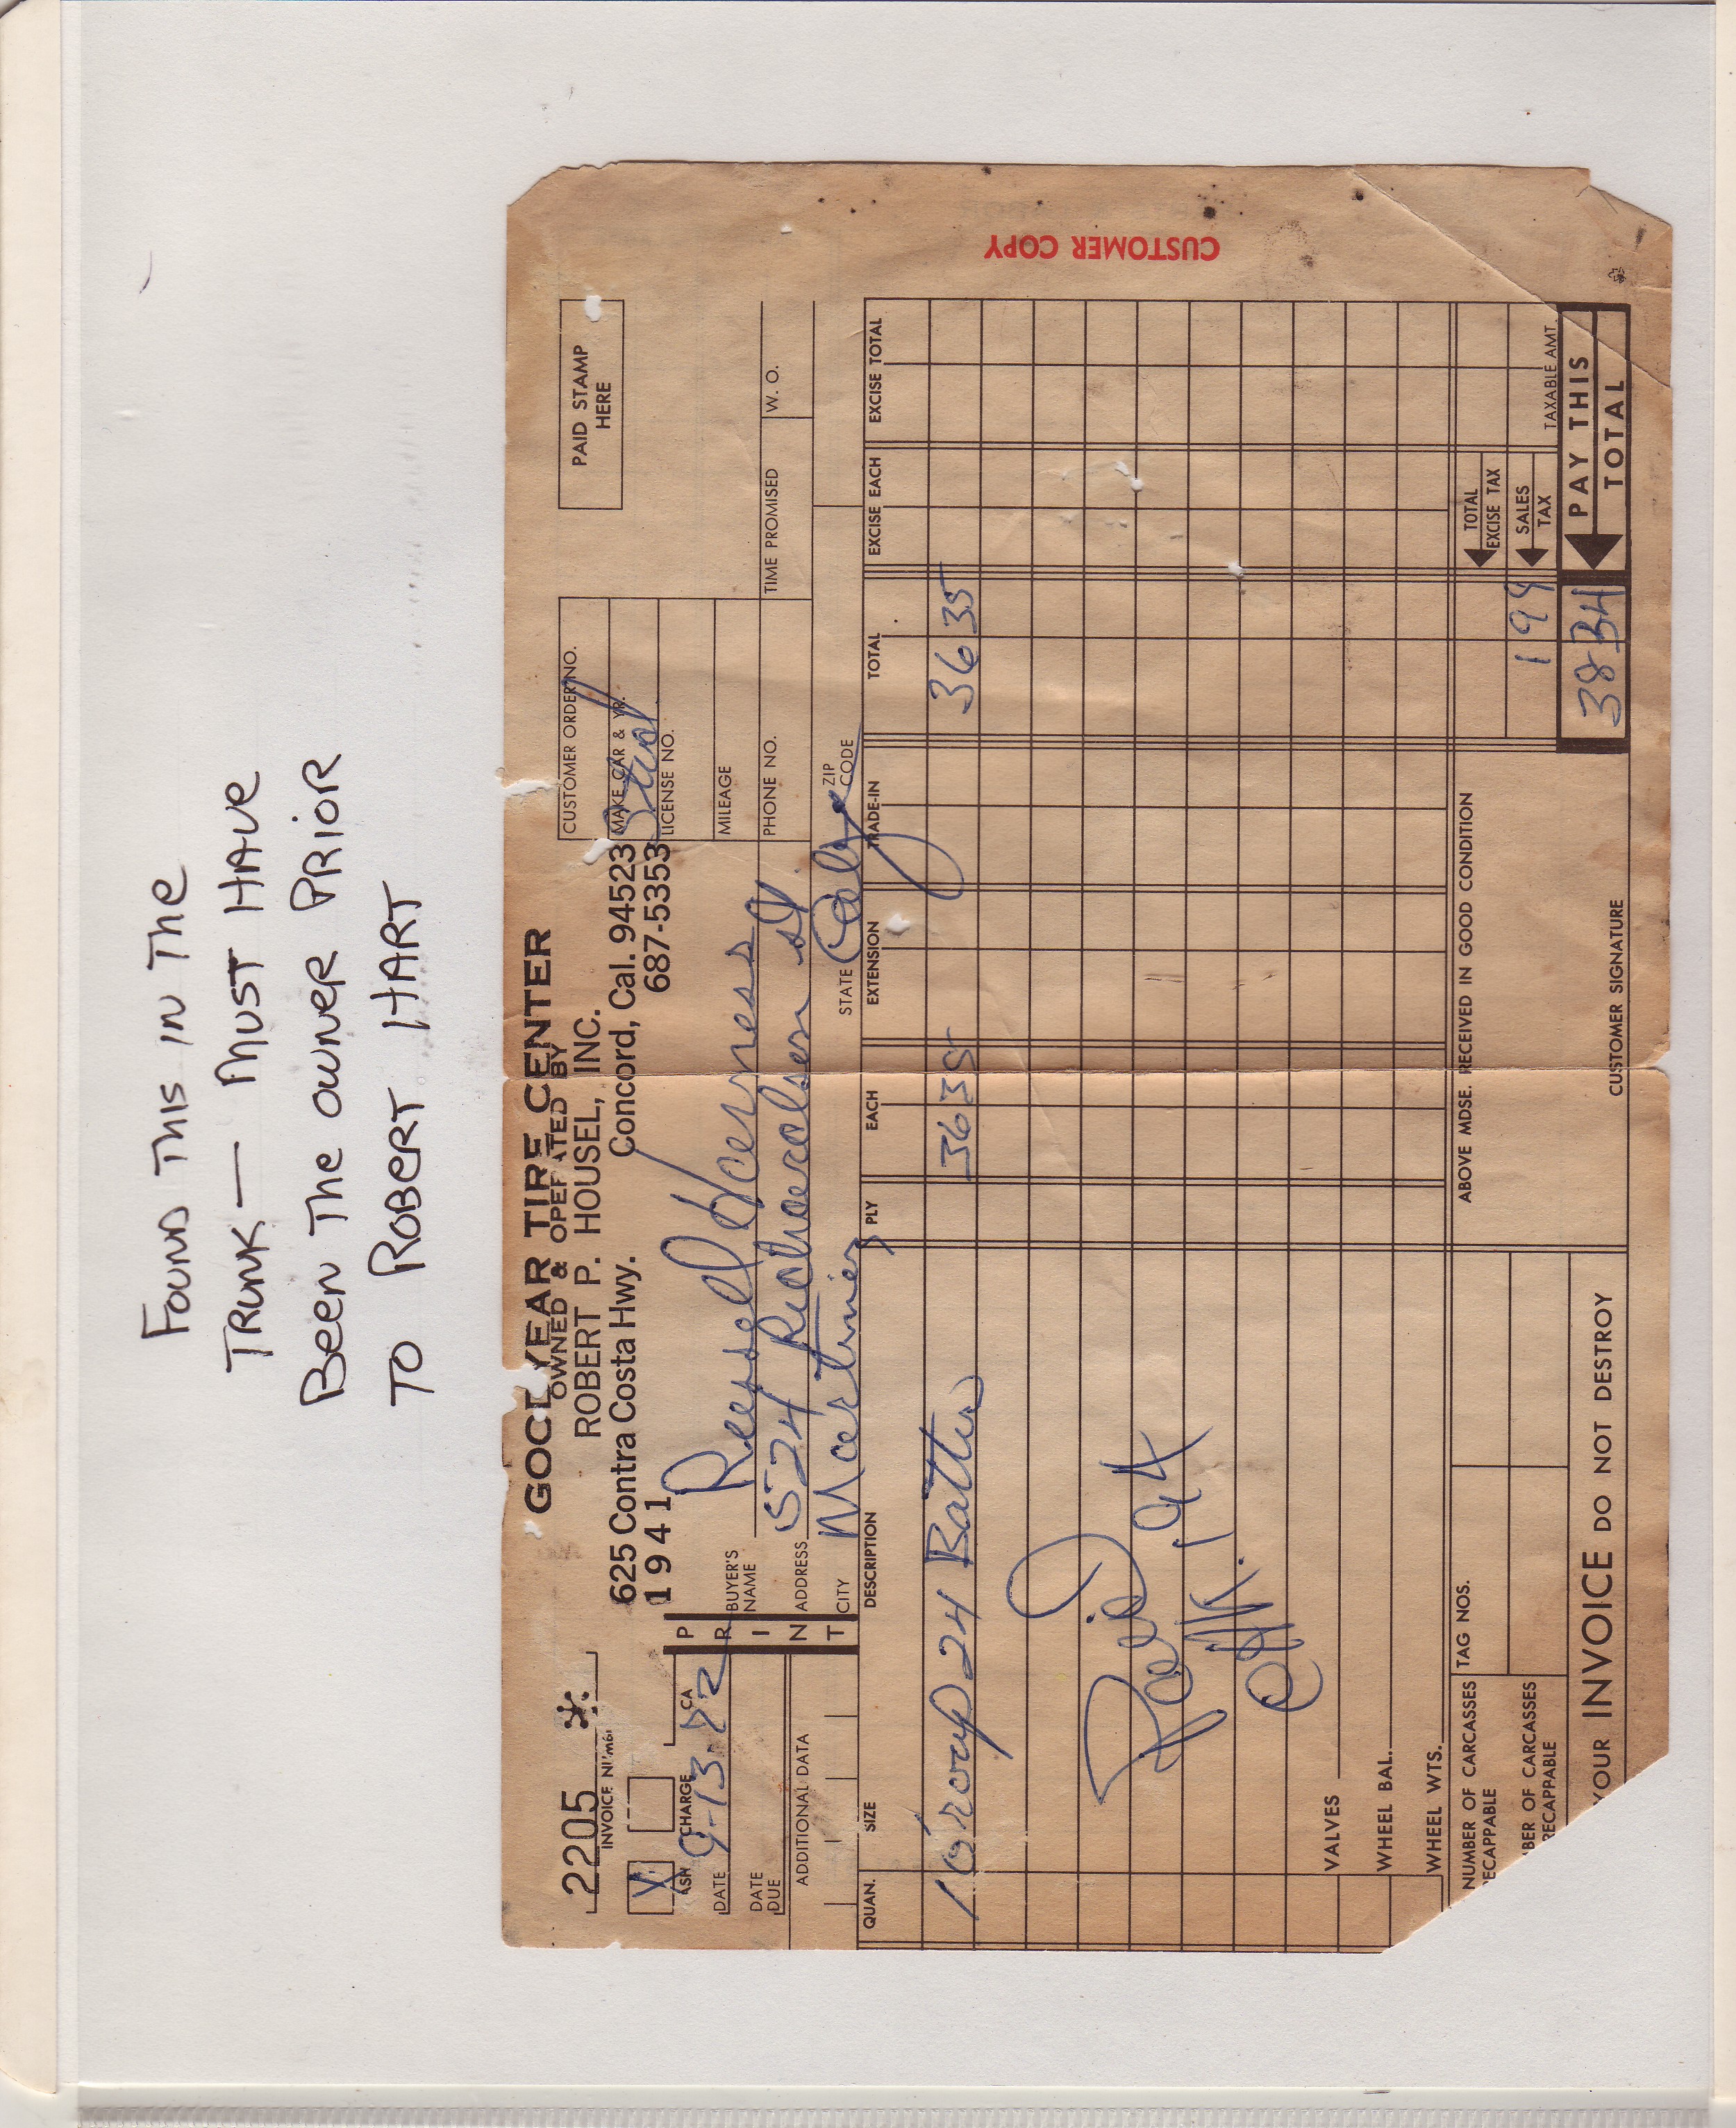 FOUND THIS IN THE
TRUNK — MUST HAVE
BEEN THE OWNER PRIOR
TO ROBERT HART
2205
INVOICE NUMBER
GOODYEAR TIRE CENTER
OWNED & OPERATED BY
ROBERT P. HOUSEL, INC.
625 Contra Costa Hwy. Concord, Cal. 94523
1941 687-5353
PAID STAMP
HERE
CUSTOMER ORDER NO.
MAKE CAR & YR.
Stud
LICENSE NO.
MILEAGE
PHONE NO. TIME PROMISED W. O.
X
ASH CHARGE CA
DATE 9-13-72
DATE
DUE
ADDITIONAL DATA
PRINT
BUYER'S
NAME Russel Harness
ADDRESS 524 Richardson St.
CITY Martinez STATE Calif ZIP
CODE
QUAN. SIZE DESCRIPTION PLY EACH EXTENSION TRADE-IN TOTAL EXCISE EACH EXCISE TOTAL
1 Group 24 3635 3635
Paid
VALVES
WHEEL BAL.
WHEEL WTS.
NUMBER OF CARCASSES
ECAPPABLE
TAG NOS.
BER OF CARCASSES
RECAPPABLE
ABOVE MDSE. RECEIVED IN GOOD CONDITION
TOTAL
EXCISE TAX
199 SALES
TAX
TAXABLE AMT.
3834 PAY THIS
TOTAL
YOUR INVOICE DO NOT DESTROY
CUSTOMER SIGNATURE
CUSTOMER COPY